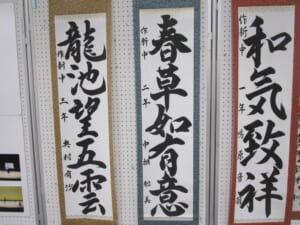 和気致祥
作新中 一年
春草如有意
作新中 二年
龍池望五雲
作新中 三年 奥村